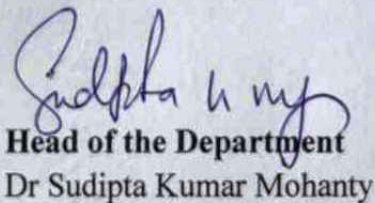 Sudipta K
Head of the Department
Dr Sudipta Kumar Mohanty